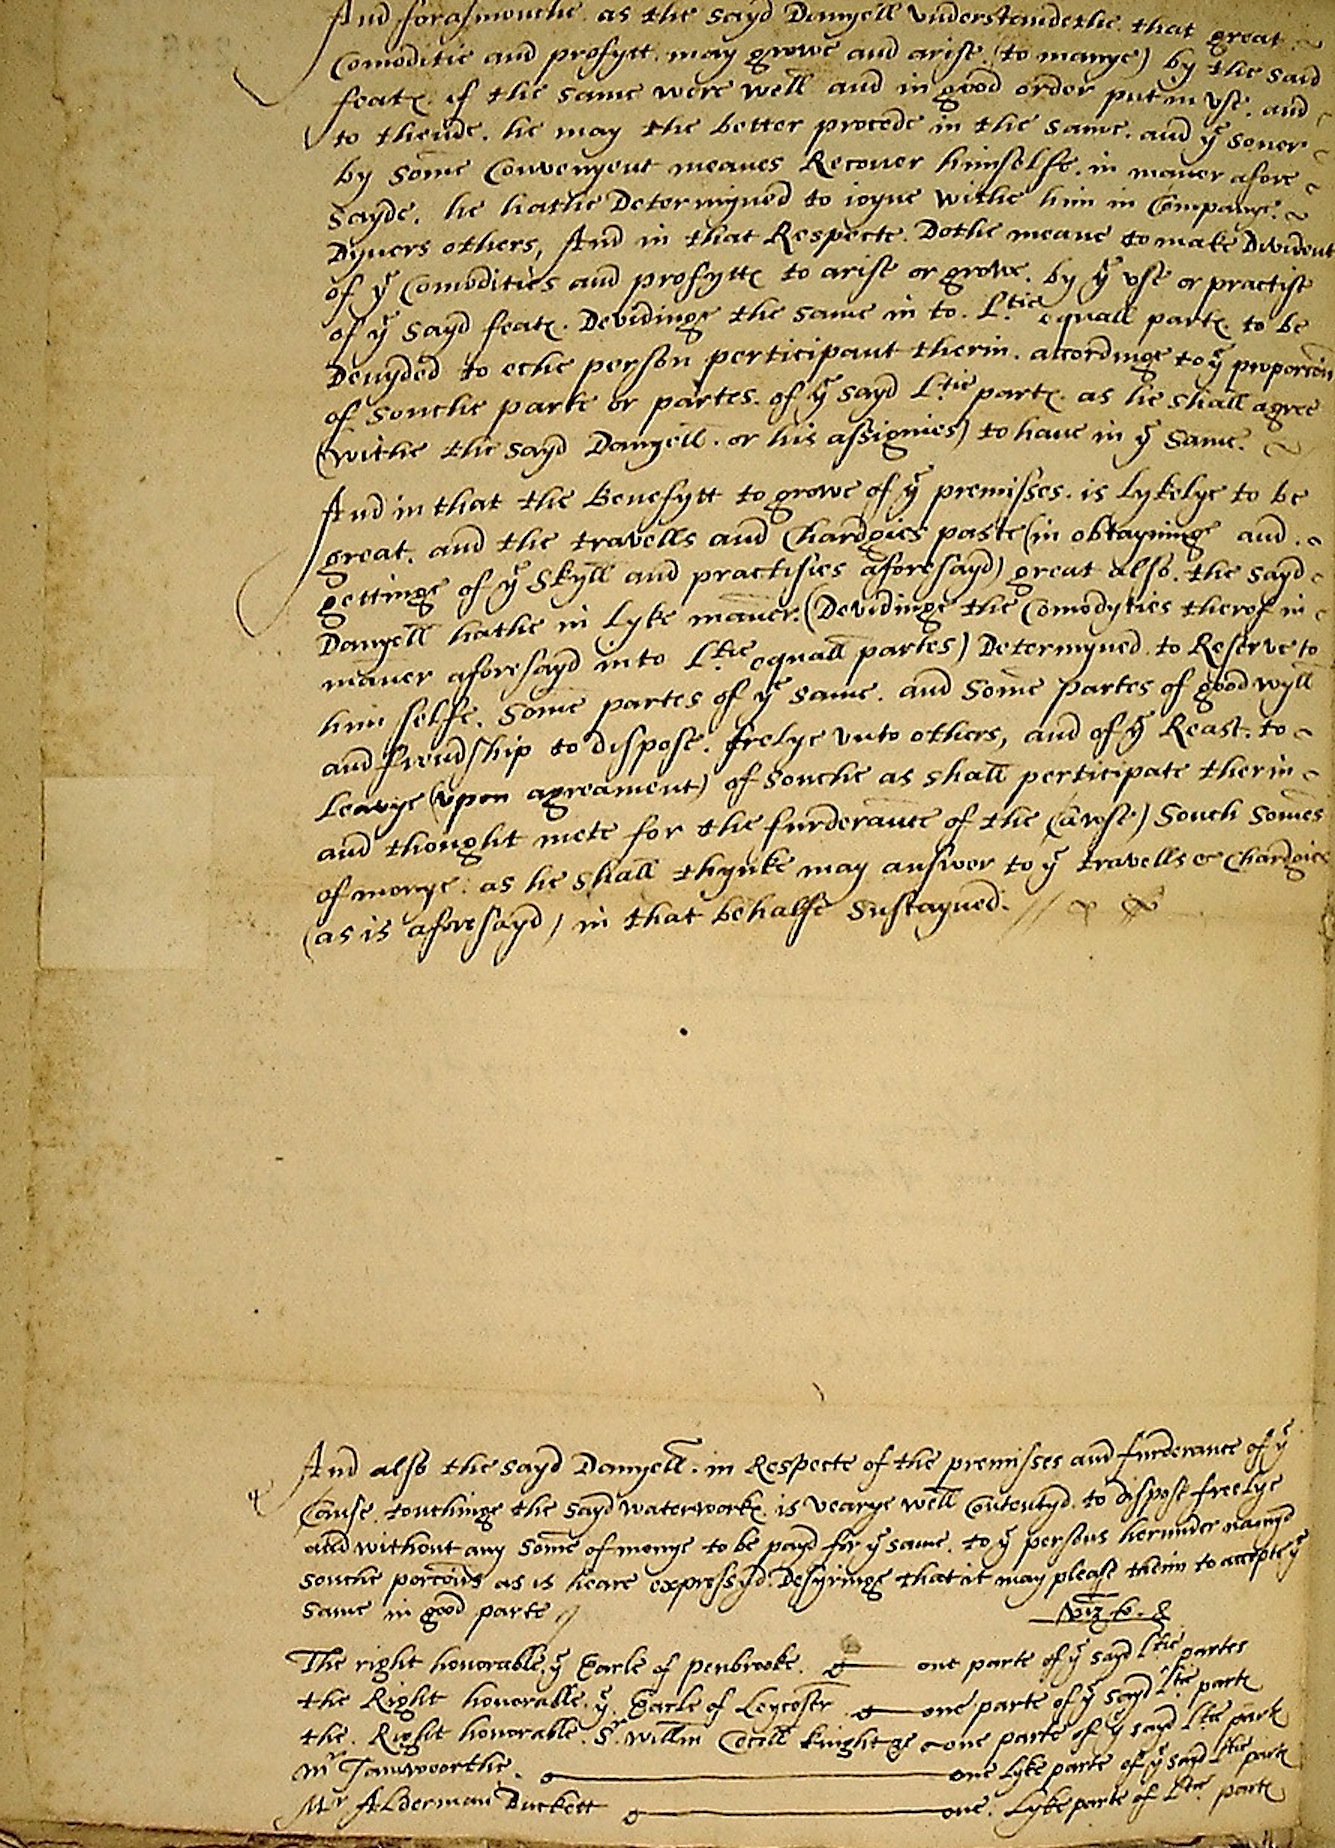 And forasmouche as the sayd Danyell understandethe that great
Comoditie and profytt may growe and arise (to manye) by the said
feates if the same were well and in good order put in use. and
to thende. he may the better procede in the same. and yͤ soner
by some Convenyent meanes Recover himselfe. in maner afore
sayde. he hathe Determyned to ioyne withe him in Companye.
Dyvers others, And in that Respecte. Dothe meane to make Divident
of yͤ Comodities and profyttes to arise or growe. by yͤ use or practise
of yͤ sayd feates. Devidinge the same in to. Lᵗⁱᵉ equall partes. to be
Devyded to eche person perticipant therin. accordinge to yͤ proporcion
of souche parte or partes. of yͤ sayd Lᵗⁱᵉ partes. as he shall agree
(withe the sayd Danyell. or his assignies) to have in yͤ same.
And in that the Benefytt to growe of yͤ premisses. is lykelye to be
great. and the travells and Chardgies paste (in obtayninge and
gettinge of yͤ skyll and practisies aforesayd) great also. the sayd
Danyell hathe in lyke maner. (Devidinge the Comodyties therof in
maner aforesayd into Lᵗⁱᵉ equall partes) Determyned to Reserve to
him selfe. Some partes of yͤ same. and some partes of good wyll
and frendship to dispose. frelye unto others, and of yͤ Reast. to
Leavye (upon agreament) of souche as shall perticipate therin
and thought mete for the furderance of the (cawse) Souch Somes
of monye: as he shall thynke may answer to yͤ travells & Chardgies
(as is aforesayd) in that behalfe Sustayned. //
And also the sayd Danyell. in Respecte of the premisses and furderance of yͤ
Cause. touchinge the sayd waterworkes. is vearye well Contentyd. to dispose freelye
and without any some of monye to be payd for yͤ same. to yͤ persons herunder namyd
souche porcions as is heare expressyd. Desyringe that it may please them to accepte yͤ
same in good parte
The right honorable. yͤ Earle of penbrooke. one parte of yͤ sayd Lᵗⁱᵉ partes
the Right honorable. yͤ. Earle of Leycester. one parte of yͤ sayd Lᵗⁱᵉ partes
the. Right honorable. Sʳ. Willm Cecill knight one parte of yͤ sayd Lᵗⁱᵉ partes
mʳ Tamwoorthe. one lyke parte of yͤ sayd Lᵗⁱᵉ partes
Mʳ Alderman Duckett one. lyke parte of Lᵗⁱᵉ partes